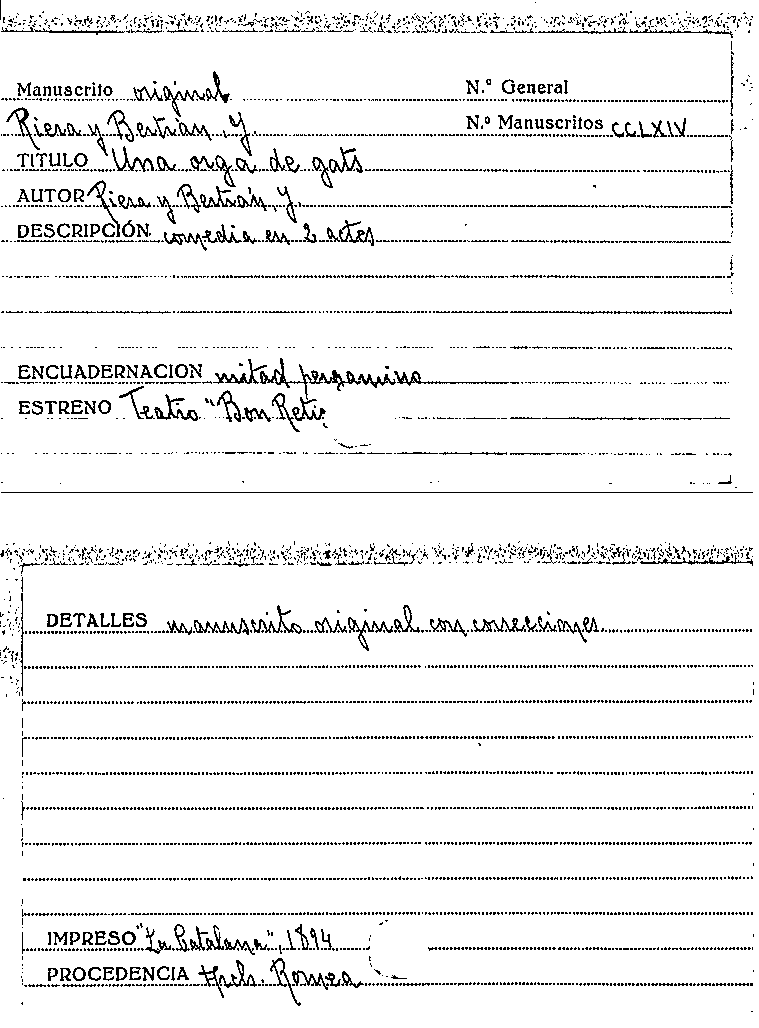 Manuscrito original N.º General
Riera y Bertrán, J. N.º Manuscritos CCLXIV
TITULO Una orga de gats
AUTOR Riera y Bertrán, J.
DESCRIPCIÓN comedia en 2 actes
ENCUADERNACION mitad pergamino
ESTRENO Teatro "Bon Retir
DETALLES manuscrito original con correcciones
IMPRESO "La Catalana", 1894
PROCEDENCIA Romea